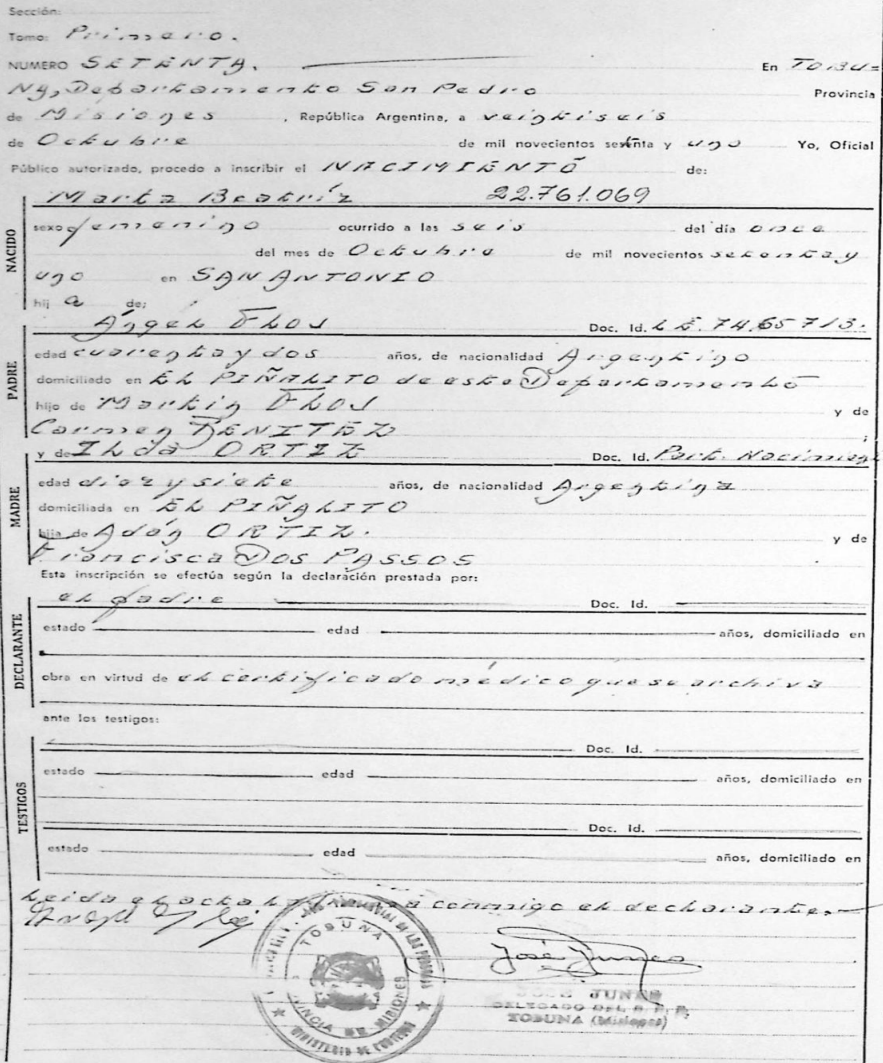 Sección:
Tomo: Primero.
NUMERO SETENTA. En TOBU=
NA, Departamento San Pedro Provincia
de Misiones , República Argentina, a veintiseis
de Octubre de mil novecientos setenta y uno Yo, Oficial
Público autorizado, procedo a inscribir el NACIMIENTO de:
Marta Beatríz 22.761.069
NACIDO
sexo femenino ocurrido a las seis del día once
del mes de Octubre de mil novecientos setenta y
uno en SAN ANTONIO
hij a de:
Ángel Doc. Id. L.E. 7465713.
PADRE
edad cuarenta y dos años, de nacionalidad Argentino
domiciliado en EL PIÑALITO de este Departamento
hijo de Martin y de
Carmen BENITEZ ;
y de Ilda ORTIZ Doc. Id. Part. Nacimient
MADRE
edad diez y siete años, de nacionalidad Argentina
domiciliada en EL PIÑALITO
hija de Adán ORTIZ. y de
Francisca DOS PASSOS
Esta inscripción se efectúa según la declaración prestada por:
el padre Doc. Id.
DECLARANTE
estado edad años, domiciliado en
obra en virtud de el certificado médico que se archiva
ante los testigos:
Doc. Id.
TESTIGOS
estado edad años, domiciliado en
Doc. Id.
estado edad años, domiciliado en
Leida el acta conmigo el declarante.
TOBUNA
PROVINCIA DE MISIONES
MINISTERIO DE
José Junes
JOSE JUNES
DELEGADO DEL R. P. P.
TOBUNA (Misiones)